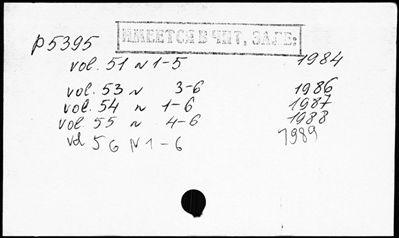 р5395
ИМЕЕТСЯ В ЧИТ. ЗАЛЕ:
vol. 51 N 1-5 1984
vol. 53 N 3-6 1986
vol. 54 N 1-6 1987
vol. 55 N 4-6 1988
vol 56 N 1-6 1989